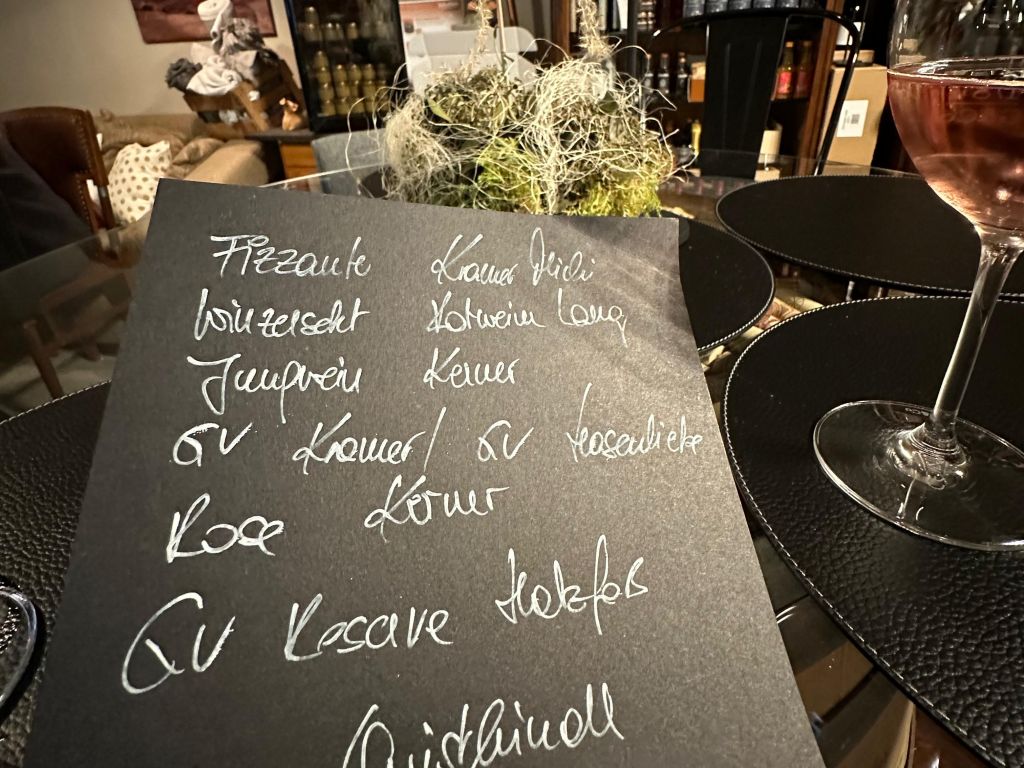 Fizzante Kramer Michi
Winzersekt Rotwein Lang
Jungwein Kerner
GV Kramer / GV Hosenliebe
Rose Körner
GV Reserve Holzfaß